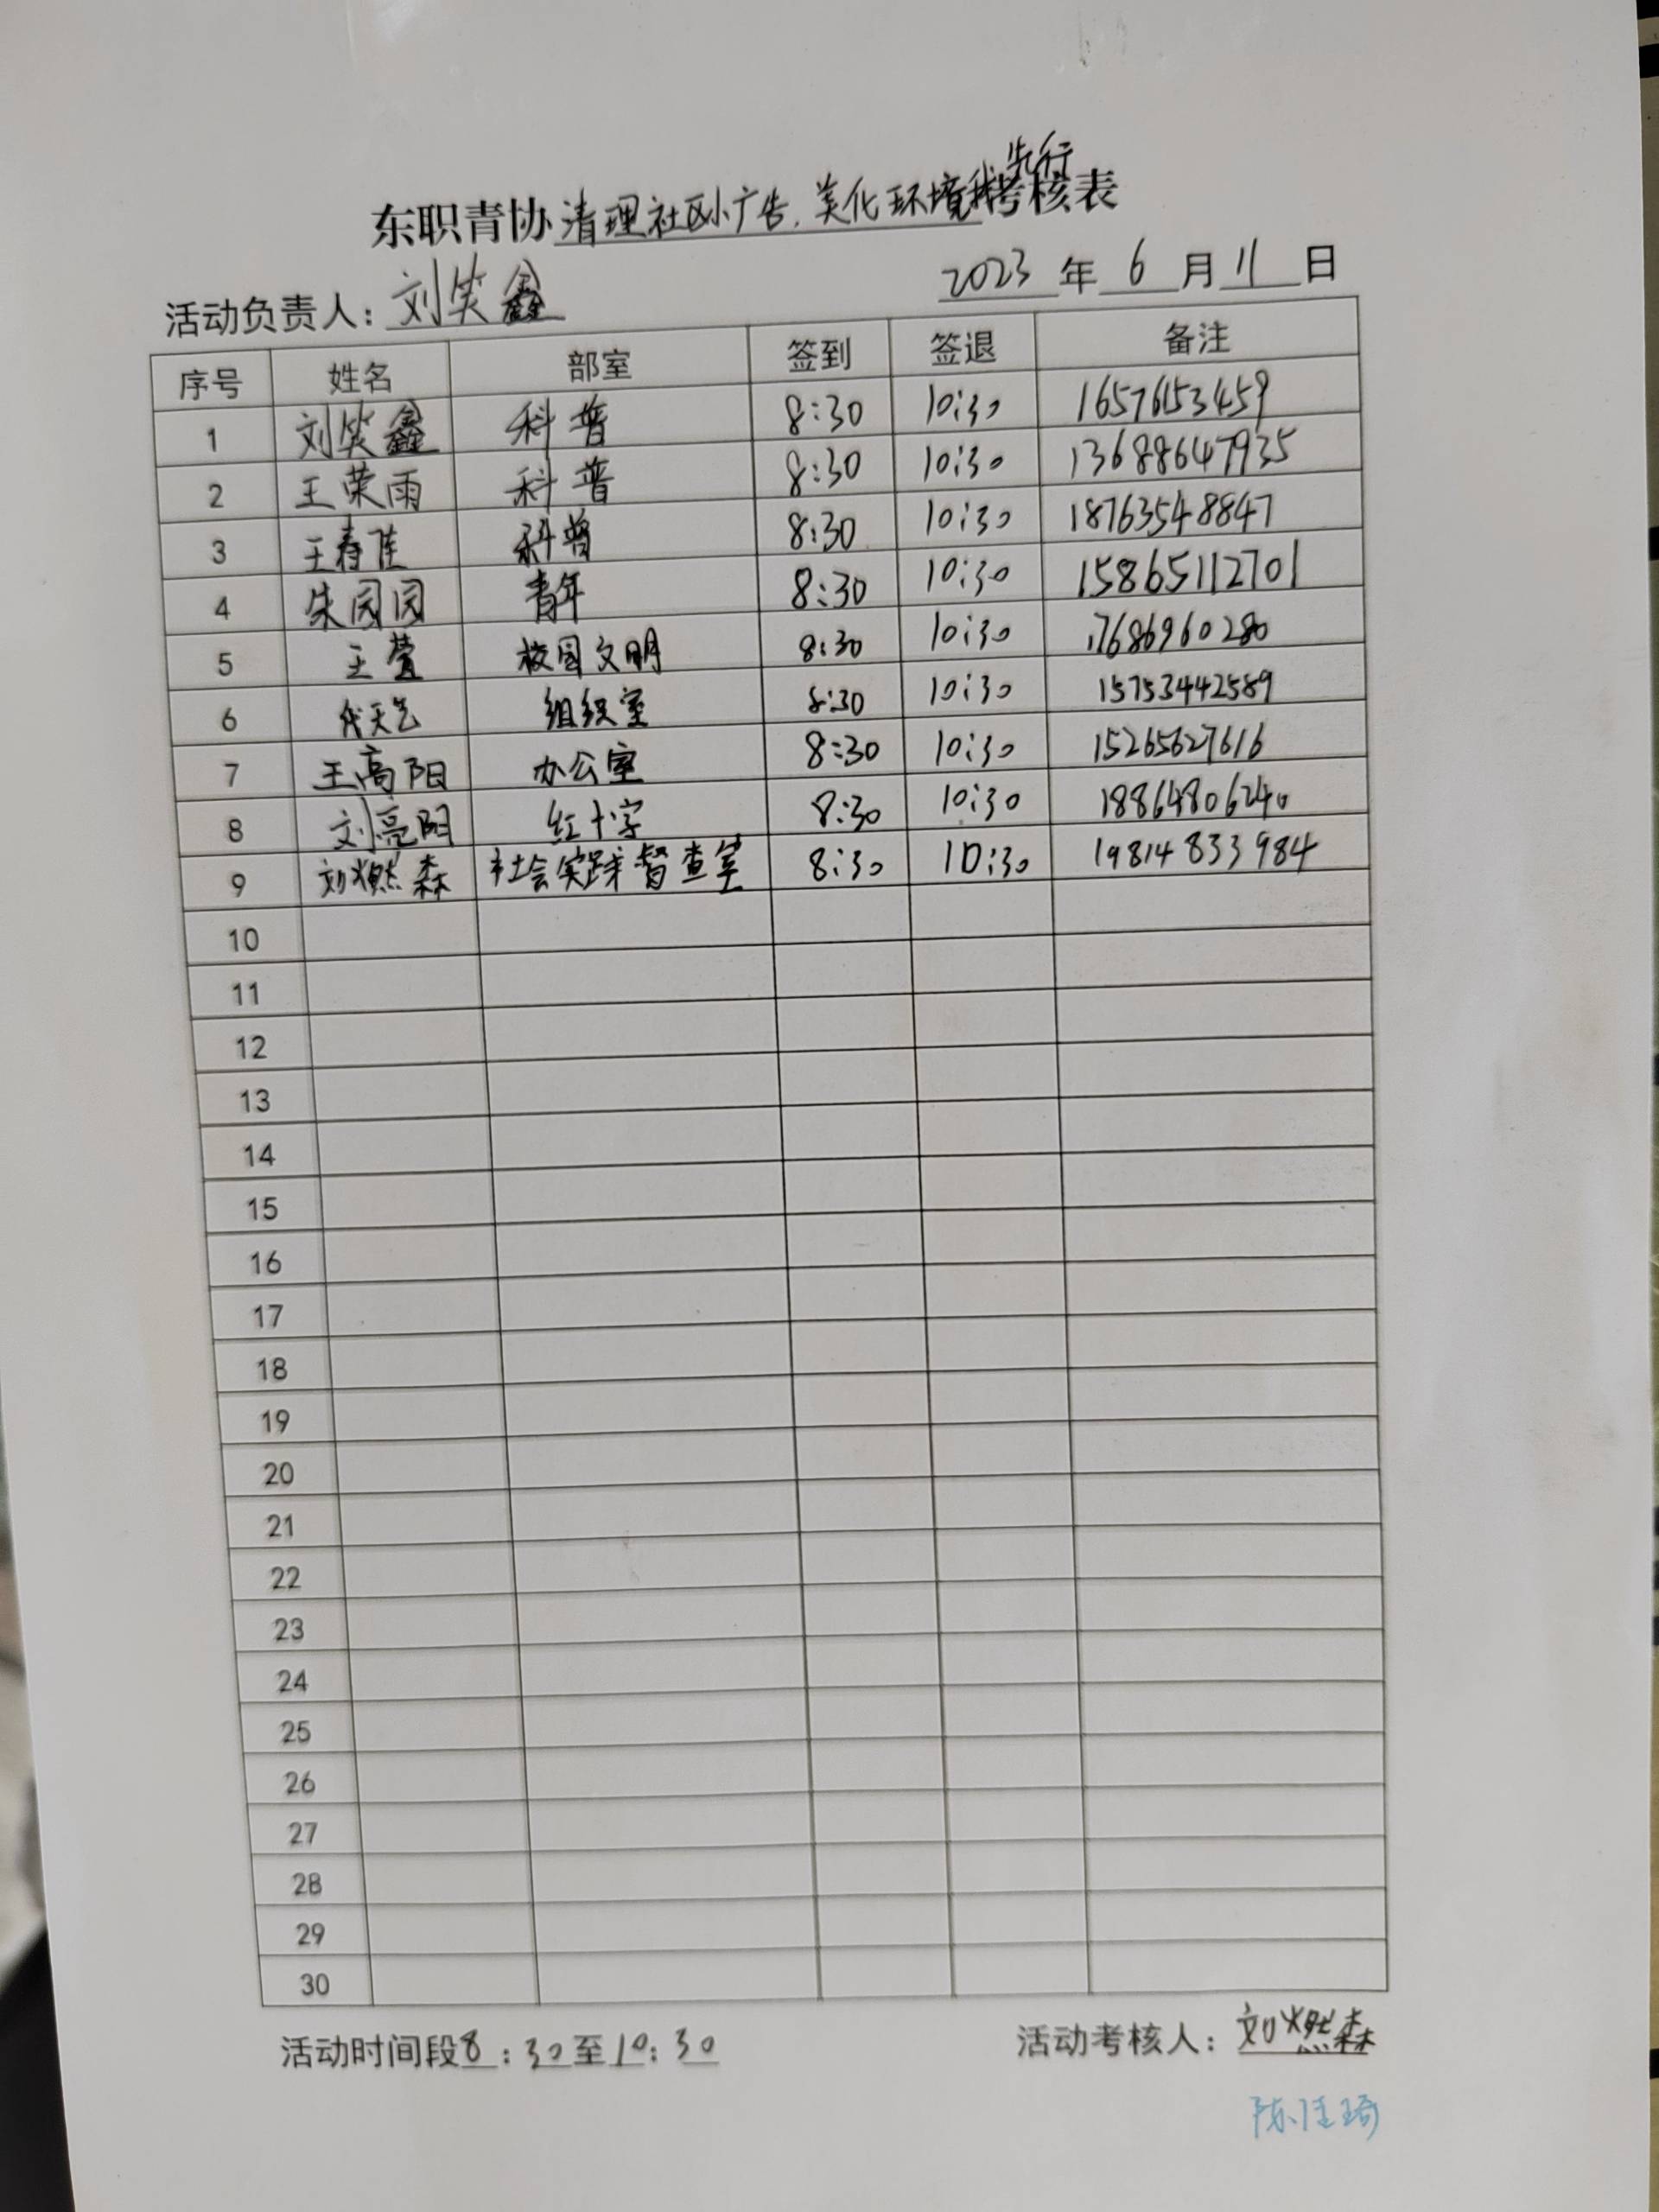 先行
东职青协清理社区小广告,美化环境我考核表
活动负责人:刘笑鑫 2023年6月11日
序号 姓名 部室 签到 签退 备注
1 刘笑鑫 科普 8:30 10:30 16576153459
2 王荣雨 科普 8:30 10:30 13688647935
3 王春佳 科普 8:30 10:30 18763548847
4 朱园园 青年 8:30 10:30 15865112701
5 王萱 校园文明 8:30 10:30 17686960280
6 代天艺 组织室 8:30 10:30 15753442589
7 王高阳 办公室 8:30 10:30 15265627616
8 刘亮阳 红十字 8:30 10:30 18864806240
9 刘燃森 社会实践督查室 8:30 10:30 19814833984
10
11
12
13
14
15
16
17
18
19
20
21
22
23
24
25
26
27
28
29
30
活动时间段8:30至10:30 活动考核人:刘燃森
陈佳琦